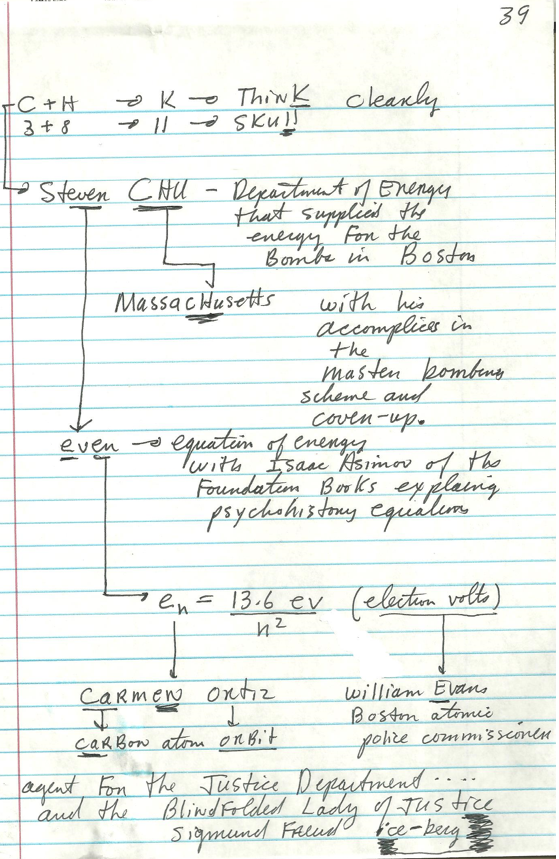 39
C + H → K → ThinK clearly
3 + 8 → 11 → SKull
Steven CHU - Department of Energy
that supplied the
energy for the
Bombs in Boston
MassacHusetts with his
accomplices in
the
master bombing
scheme and
cover-up.
even → equation of energy
with Isaac Asimov of the
Foundation Books explaing
psychohistory equations
en = 13.6 ev (electron volts)
n²
CARMEN ORtiz William Evans
Boston atomic
carBon atom orBit police commissioner
agent For the Justice Department ....
and the Blindfolded Lady of Justice
Sigmund Freud ice-berg